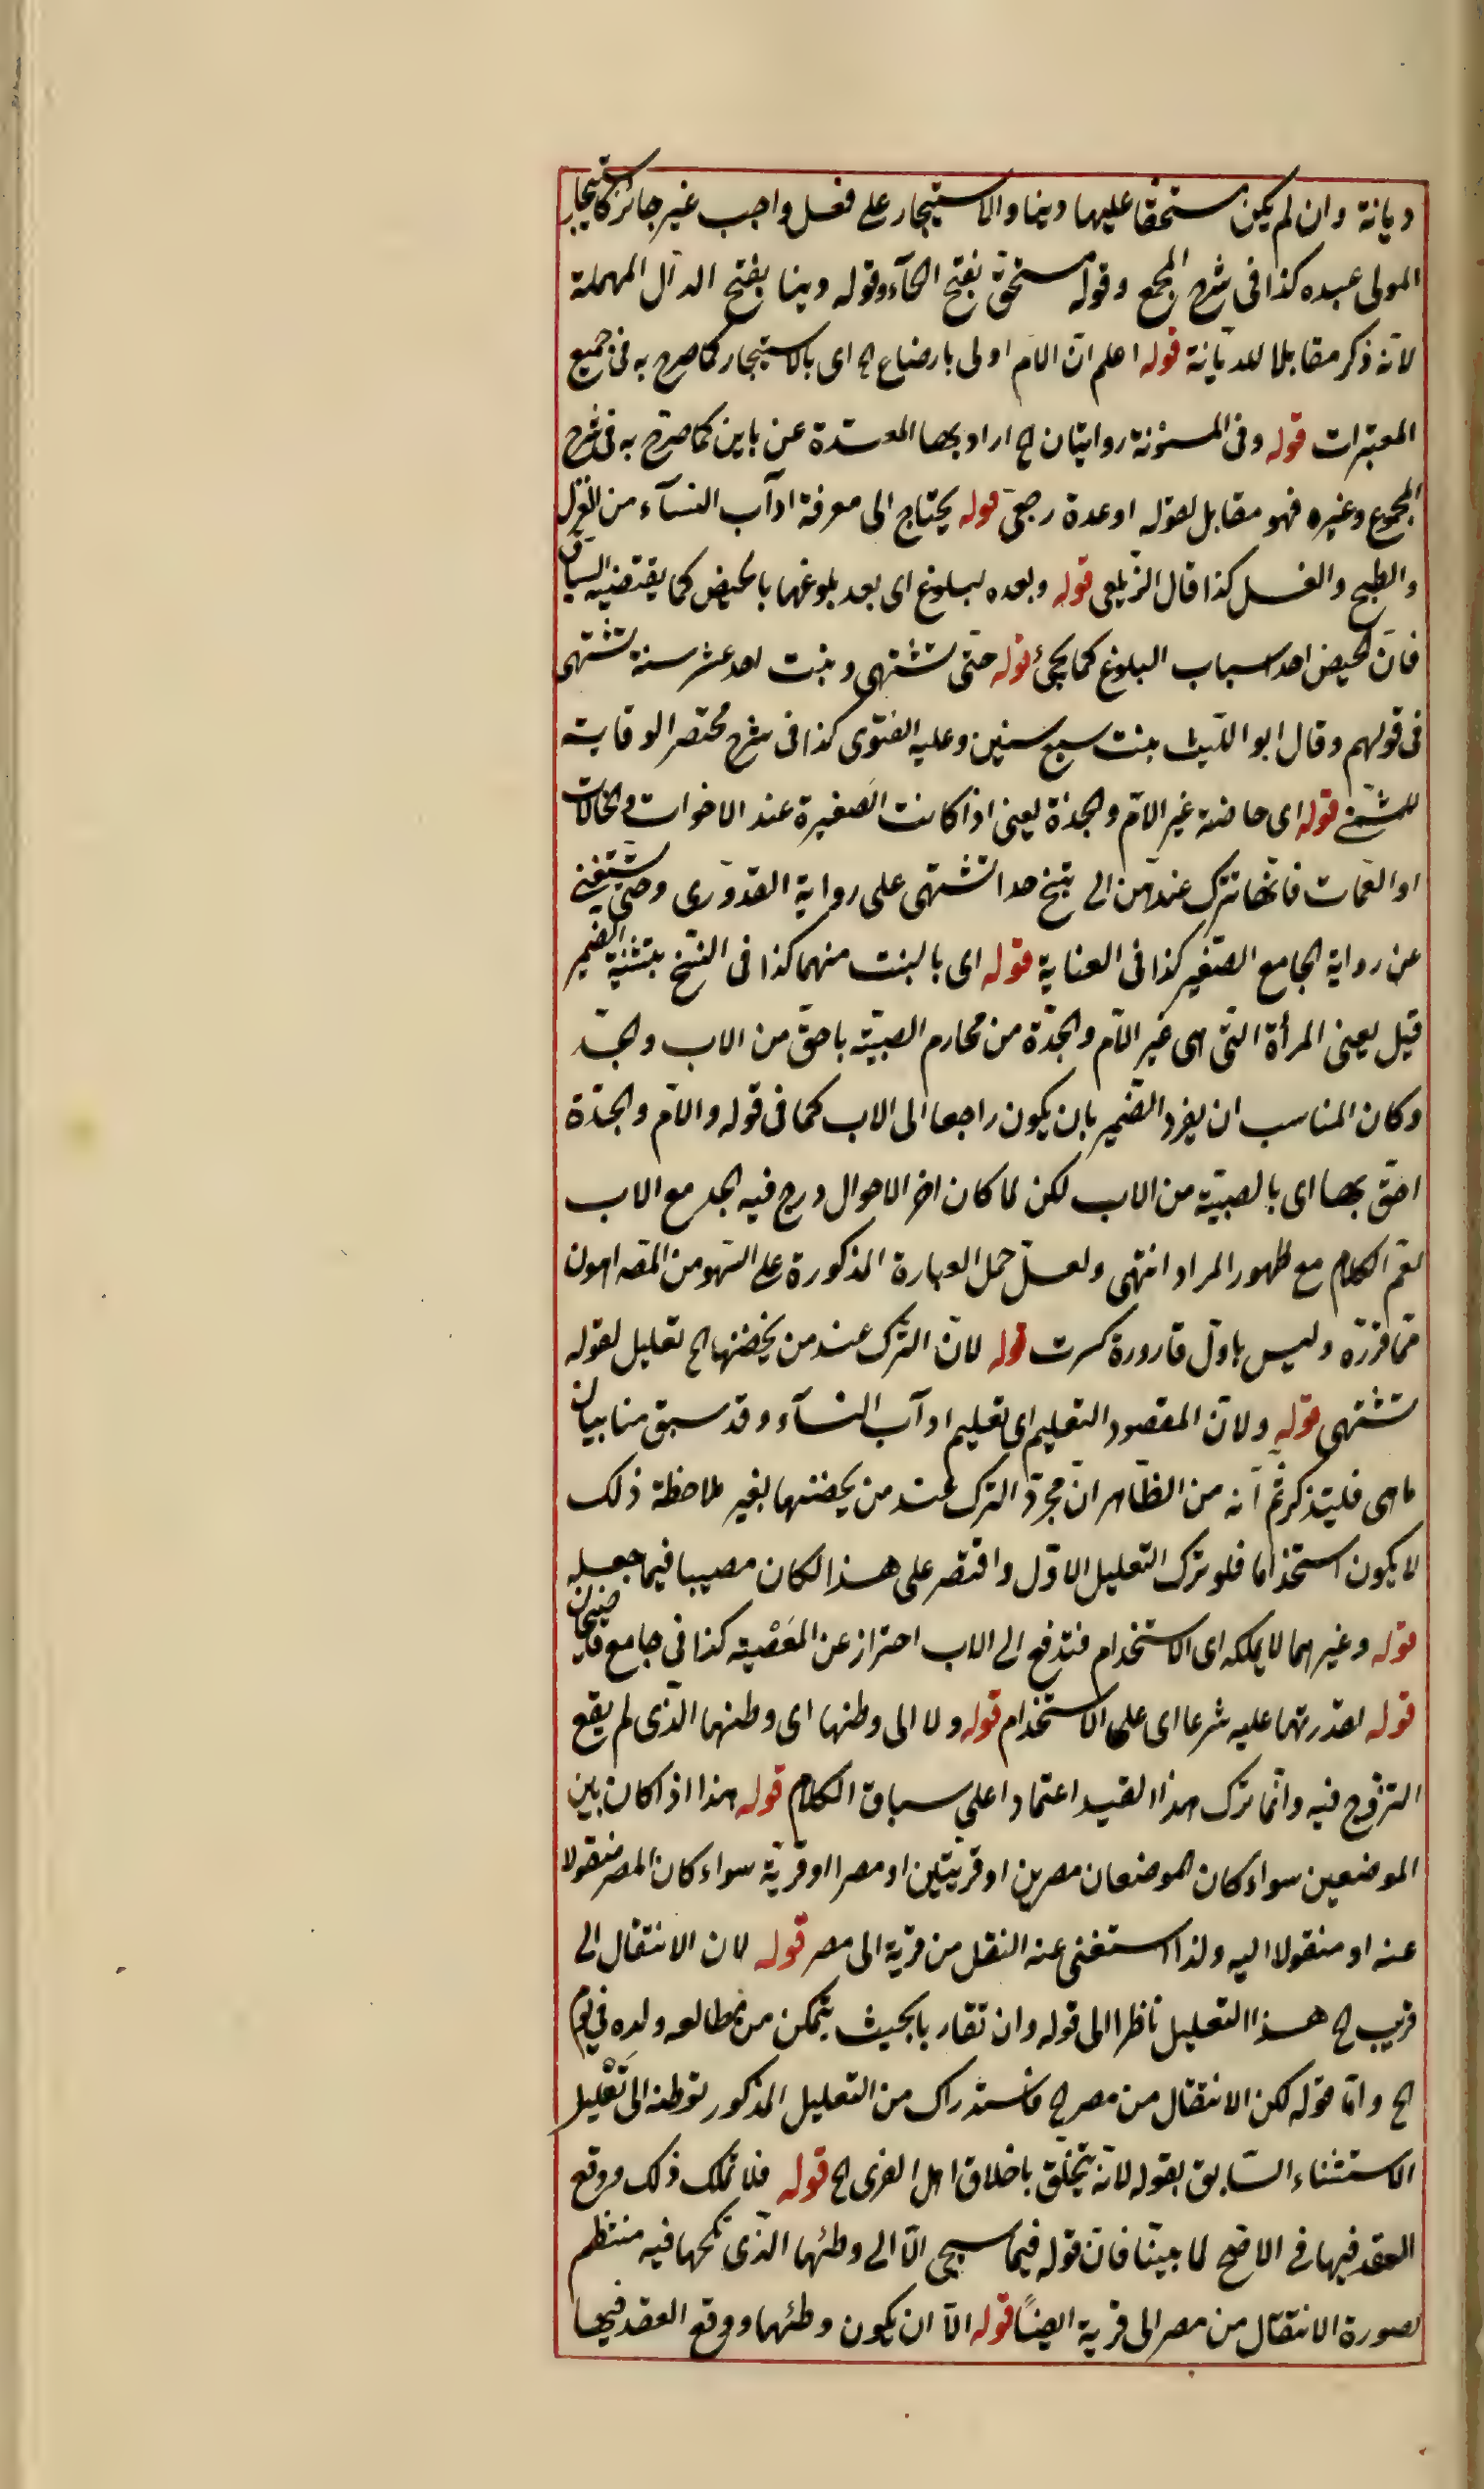 ديانة وان لم يكن مستحقا عليها دينا والاستيجار على فعل واجب غير جائز كاستيجار
المولى عبده كذا فى شرح المجمع وقوله مستحق بفتح الحآء وقوله دينا بفتح الدال المهملة
لانه ذكر مقابلا للديانة قوله اعلم انّ الامّ اولى بارضاع اه اى بالاستيجار كما صرح به فى جميع
المعتبرات قوله وفى المبتوتة روايتان اه اراد بها المعتدة عن باين كما صرّح به فى شرح
المجمع وغيره فهو مقابل لقوله او عدة رجعىّ قوله يحتاج الى معرفة اداب النسآء من الغزل
والطبخ والغسل كذا قال الزّيلعى قوله وبعده لبلوغ اى بعد بلوغها بالحيض كما يقتضيه السياق
فانّ الحيض احد اسباب البلوغ كما يجئ قوله حتى تشتهى وبنت احد عشر سنة تشتهى
فى قولهم وقال ابو الليث بنت سبع سنين وعليه الفتوى كذا فى شرح مختصر الوقاية
للشمنى قوله اى حاضنة غير الامّ والجدّة يعنى اذا كانت الصغيرة عند الاخوات والخالات
او العمات فانّها تترك عندهنّ الى تبلغ حدا تشتهى على رواية القدورى وحتى تستغنى
عن رواية الجامع الصّغير كذا فى العناية قوله اى بالبنت منهما كذا فى النسخ بتثنية الضمير
قيل يعنى المرأة التى هى غير الامّ والجدّة من محارم الصبيّة باحقّ من الاب والجدّ
وكان المناسب ان يفرد الضّمير بان يكون راجعا الى الاب كما فى قوله والامّ والجدّة
احقّ بها اى بالصبيّة من الاب لكن لما كان اخر الاحوال درج فيه الجد مع الاب
لقمّ الكلام مع ظهور المراد انتهى ولعلّ حمل العبارة المذكورة على السّهو من المصـ اهون
ممّا قرّره وليس باوّل قارورة كسرت قوله لانّ الترك عند من يحضنها اه تعليل لقوله
تشتهى قوله ولانّ المقصود التعليم اى تعليم اداب النسآء وقد سبق منا بيان
ماهى فليتذكر ثمّ انه من الظّاهر انّ مجرّد الترك عند من يحضنها بغير ملاحظة ذلك
لا يكون استخداما فلو ترك التعليل الاوّل واقتصر على هذا لكان مصيبا فيما جعله
قوله وغيرهما لا يملكه اى الاستخدام فتدفع الى الاب احتراز عن المعصية كذا فى جامع قاضيخان
قوله لقدرتهما عليه شرعا اى على الاستخدام قوله ولا الى وطنها اى وطنهما الّذى لم يقع
التزوج فيه وانّما ترك هذا القيد اعتمادا على سباق الكلام قوله هذا اذا كان بين
الموضعين سواء كان الموضعان مصرين او قريتين او مصرا او قرية سواء كان المصر منقولا
عنه او منقولا اليه ولذا استغنى عنه النقل من قرية الى مصر قوله لان الانتقال الى
قريب اه هذا التعليل ناظر الى قوله وان تقاربا بحيث يتمكن من مطالعه ولده فى يوم
اه وامّا قوله لكن الانتقال من مصر اه فاستدراك من التعليل المذكور توطئه الى تعليل
الاستثناء السّابق بقوله لانّه يتخلّق باخلاق اهل القرى اه قوله فلا تملك ذلك ووقع
العقد فيها فى الاصح لما بيّنا فان قوله فيما سيجى الّا الى وطنها الّذى نكحها فيه منتظم
لصورة الانتقال من مصر الى قرية ايضًا قوله الّا ان يكون وطنهما ووقع العقد فيها